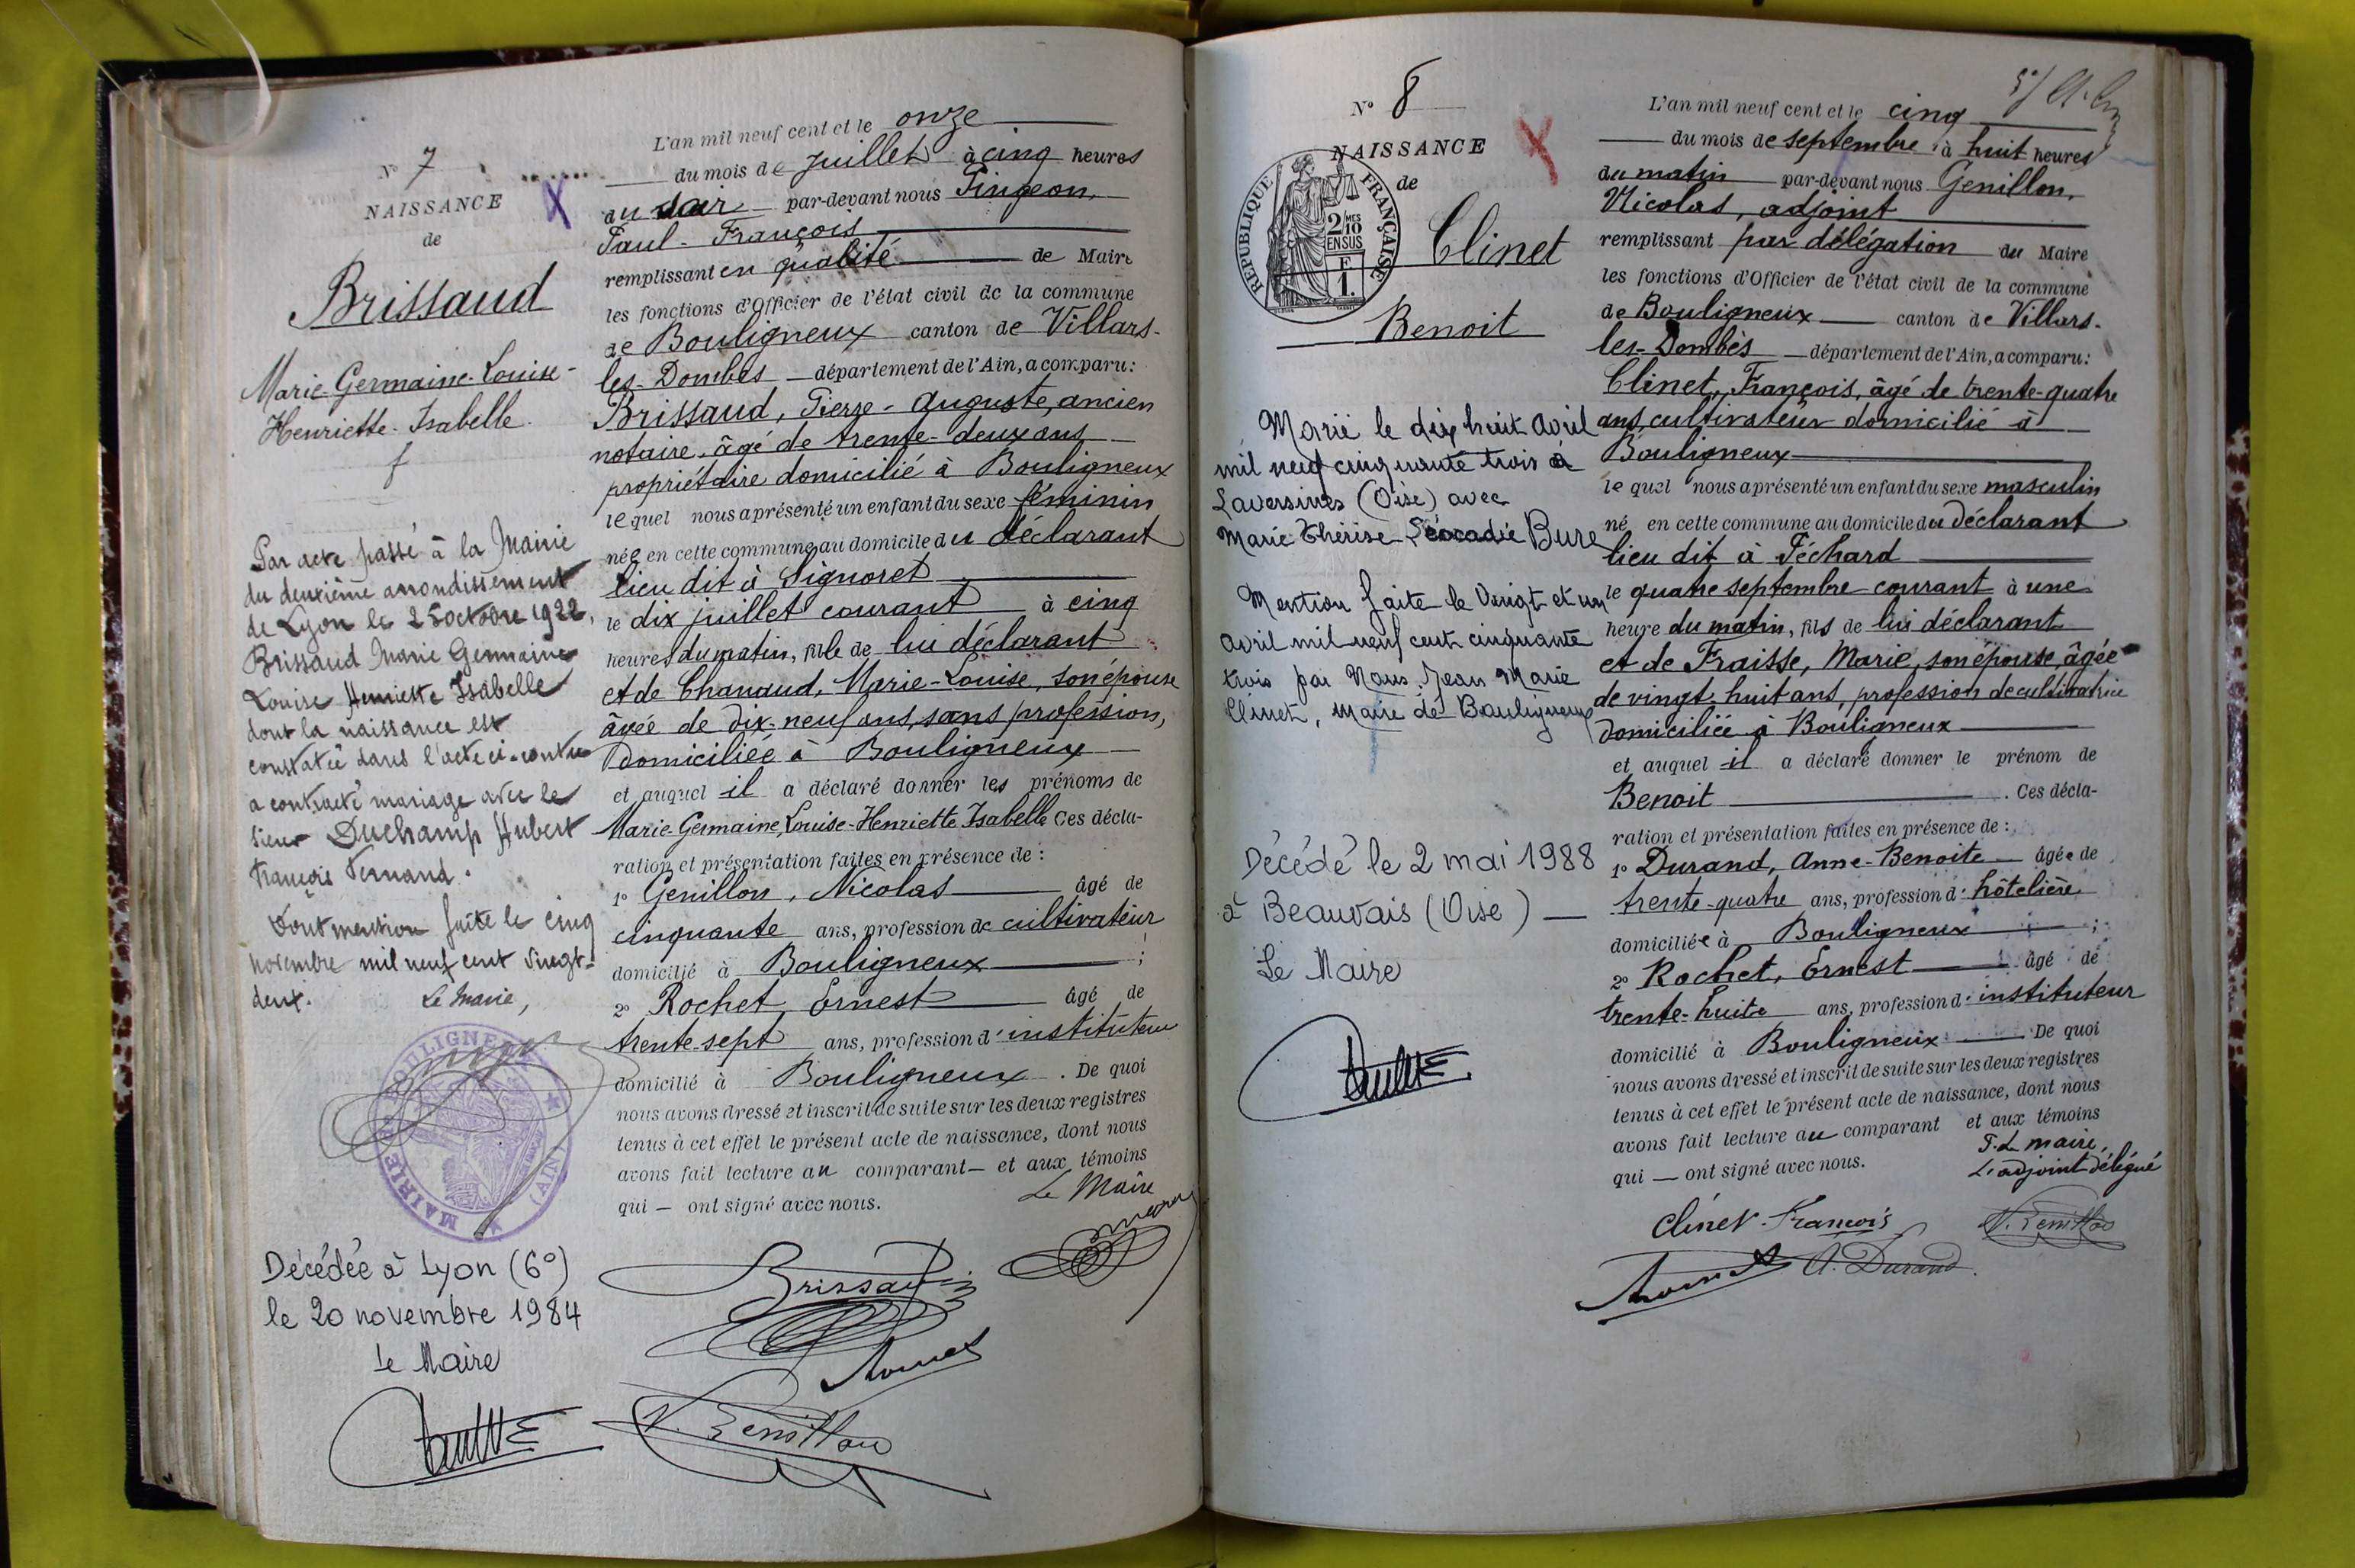 N° 7
NAISSANCE
de
Brissaud
Marie-Germaine-Louise-
Henriette-Isabelle.
f
Par acte passé à la Mairie
du deuxième arrondissement
de Lyon le 25 octobre 1922,
Brissaud Marie Germaine
Louise Henriette Isabelle
dont la naissance est
constatée dans l'acte ci-contre
a contracté mariage avec le
sieur Duchamp Hubert
François Fernand.
Dont mention faite le cinq
novembre mil neuf cent vingt-
deux. Le Maire,
MAIRIE DE BOULIGNEUX (AIN)
Décédée à Lyon (6°)
le 20 novembre 1984
Le Maire
L'an mil neuf cent et le onze
du mois de Juillet à cinq heures
du soir par-devant nous Pingeon,
Paul-François
remplissant en qualité de Maire
les fonctions d'Officier de l'état civil de la commune
de Bouligneux canton de Villars-
les-Dombes département de l'Ain, a comparu:
Brissaud, Pierre-Auguste, ancien
notaire, âgé de trente-deux ans
propriétaire domicilié à Bouligneux
lequel nous a présenté un enfant du sexe féminin
née en cette commune au domicile du déclarant
lieu dit à Signoret
le dix juillet courant à cinq
heures du matin, fille de lui déclarant
et de Chanaud, Marie-Louise, son épouse
âgée de dix-neuf ans, sans profession,
domiciliée à Bouligneux
et auquel il a déclaré donner les prénoms de
Marie Germaine, Louise-Henriette Isabelle Ces décla-
ration et présentation faites en présence de :
1° Genillon, Nicolas âgé de
cinquante ans, profession de cultivateur
domicilié à Bouligneux ;
2° Rochet, Ernest âgé de
trente-sept ans, profession d'instituteur
domicilié à Bouligneux. De quoi
nous avons dressé et inscrit de suite sur les deux registres
tenus à cet effet le présent acte de naissance, dont nous
avons fait lecture au comparant et aux témoins
qui — ont signé avec nous.
Le Maire
Brissaud
N. Genillon
N° 8
NAISSANCE
de
REPUBLIQUE FRANÇAISE
2/10 MES
EN SUS
F
1.
Clinet
Benoit
Marié le dix huit Avril
mil neuf cinquante trois à
Laversines (Oise) avec
Marie Thérèse Léocadie Bure
Mention faite le Vingt et un
avril mil neuf cent cinquante
trois par Nous, Jean Marie
Clinet, Maire de Bouligneux
Décédé le 2 mai 1988
à Beauvais (Oise) —
Le Maire
L'an mil neuf cent et le cinq
du mois de septembre à huit heures
du matin par-devant nous Genillon,
Nicolas, adjoint
remplissant par délégation du Maire
les fonctions d'Officier de l'état civil de la commune
de Bouligneux canton de Villars-
les-Dombes département de l'Ain, a comparu:
Clinet, François, âgé de trente-quatre
ans, cultivateur domicilié à
Bouligneux
lequel nous a présenté un enfant du sexe masculin
né en cette commune au domicile du déclarant
lieu dit à Péchard
le quatre septembre courant à une
heure du matin, fils de lui déclarant
et de Fraisse, Marie, son épouse, âgée
de vingt-huit ans, profession de cultivatrice
domiciliée à Bouligneux
et auquel il a déclaré donner le prénom de
Benoit. Ces décla-
ration et présentation faites en présence de :
1° Durand, Anne-Benoite âgée de
trente-quatre ans, profession d'hôtelière
domiciliée à Bouligneux ;
2° Rochet, Ernest âgé de
trente-huit ans, profession d'instituteur
domicilié à Bouligneux De quoi
nous avons dressé et inscrit de suite sur les deux registres
tenus à cet effet le présent acte de naissance, dont nous
avons fait lecture au comparant et aux témoins
qui — ont signé avec nous.
P. Le maire,
L'adjoint délégué
Clinet François
N. Genillon
A. Durand